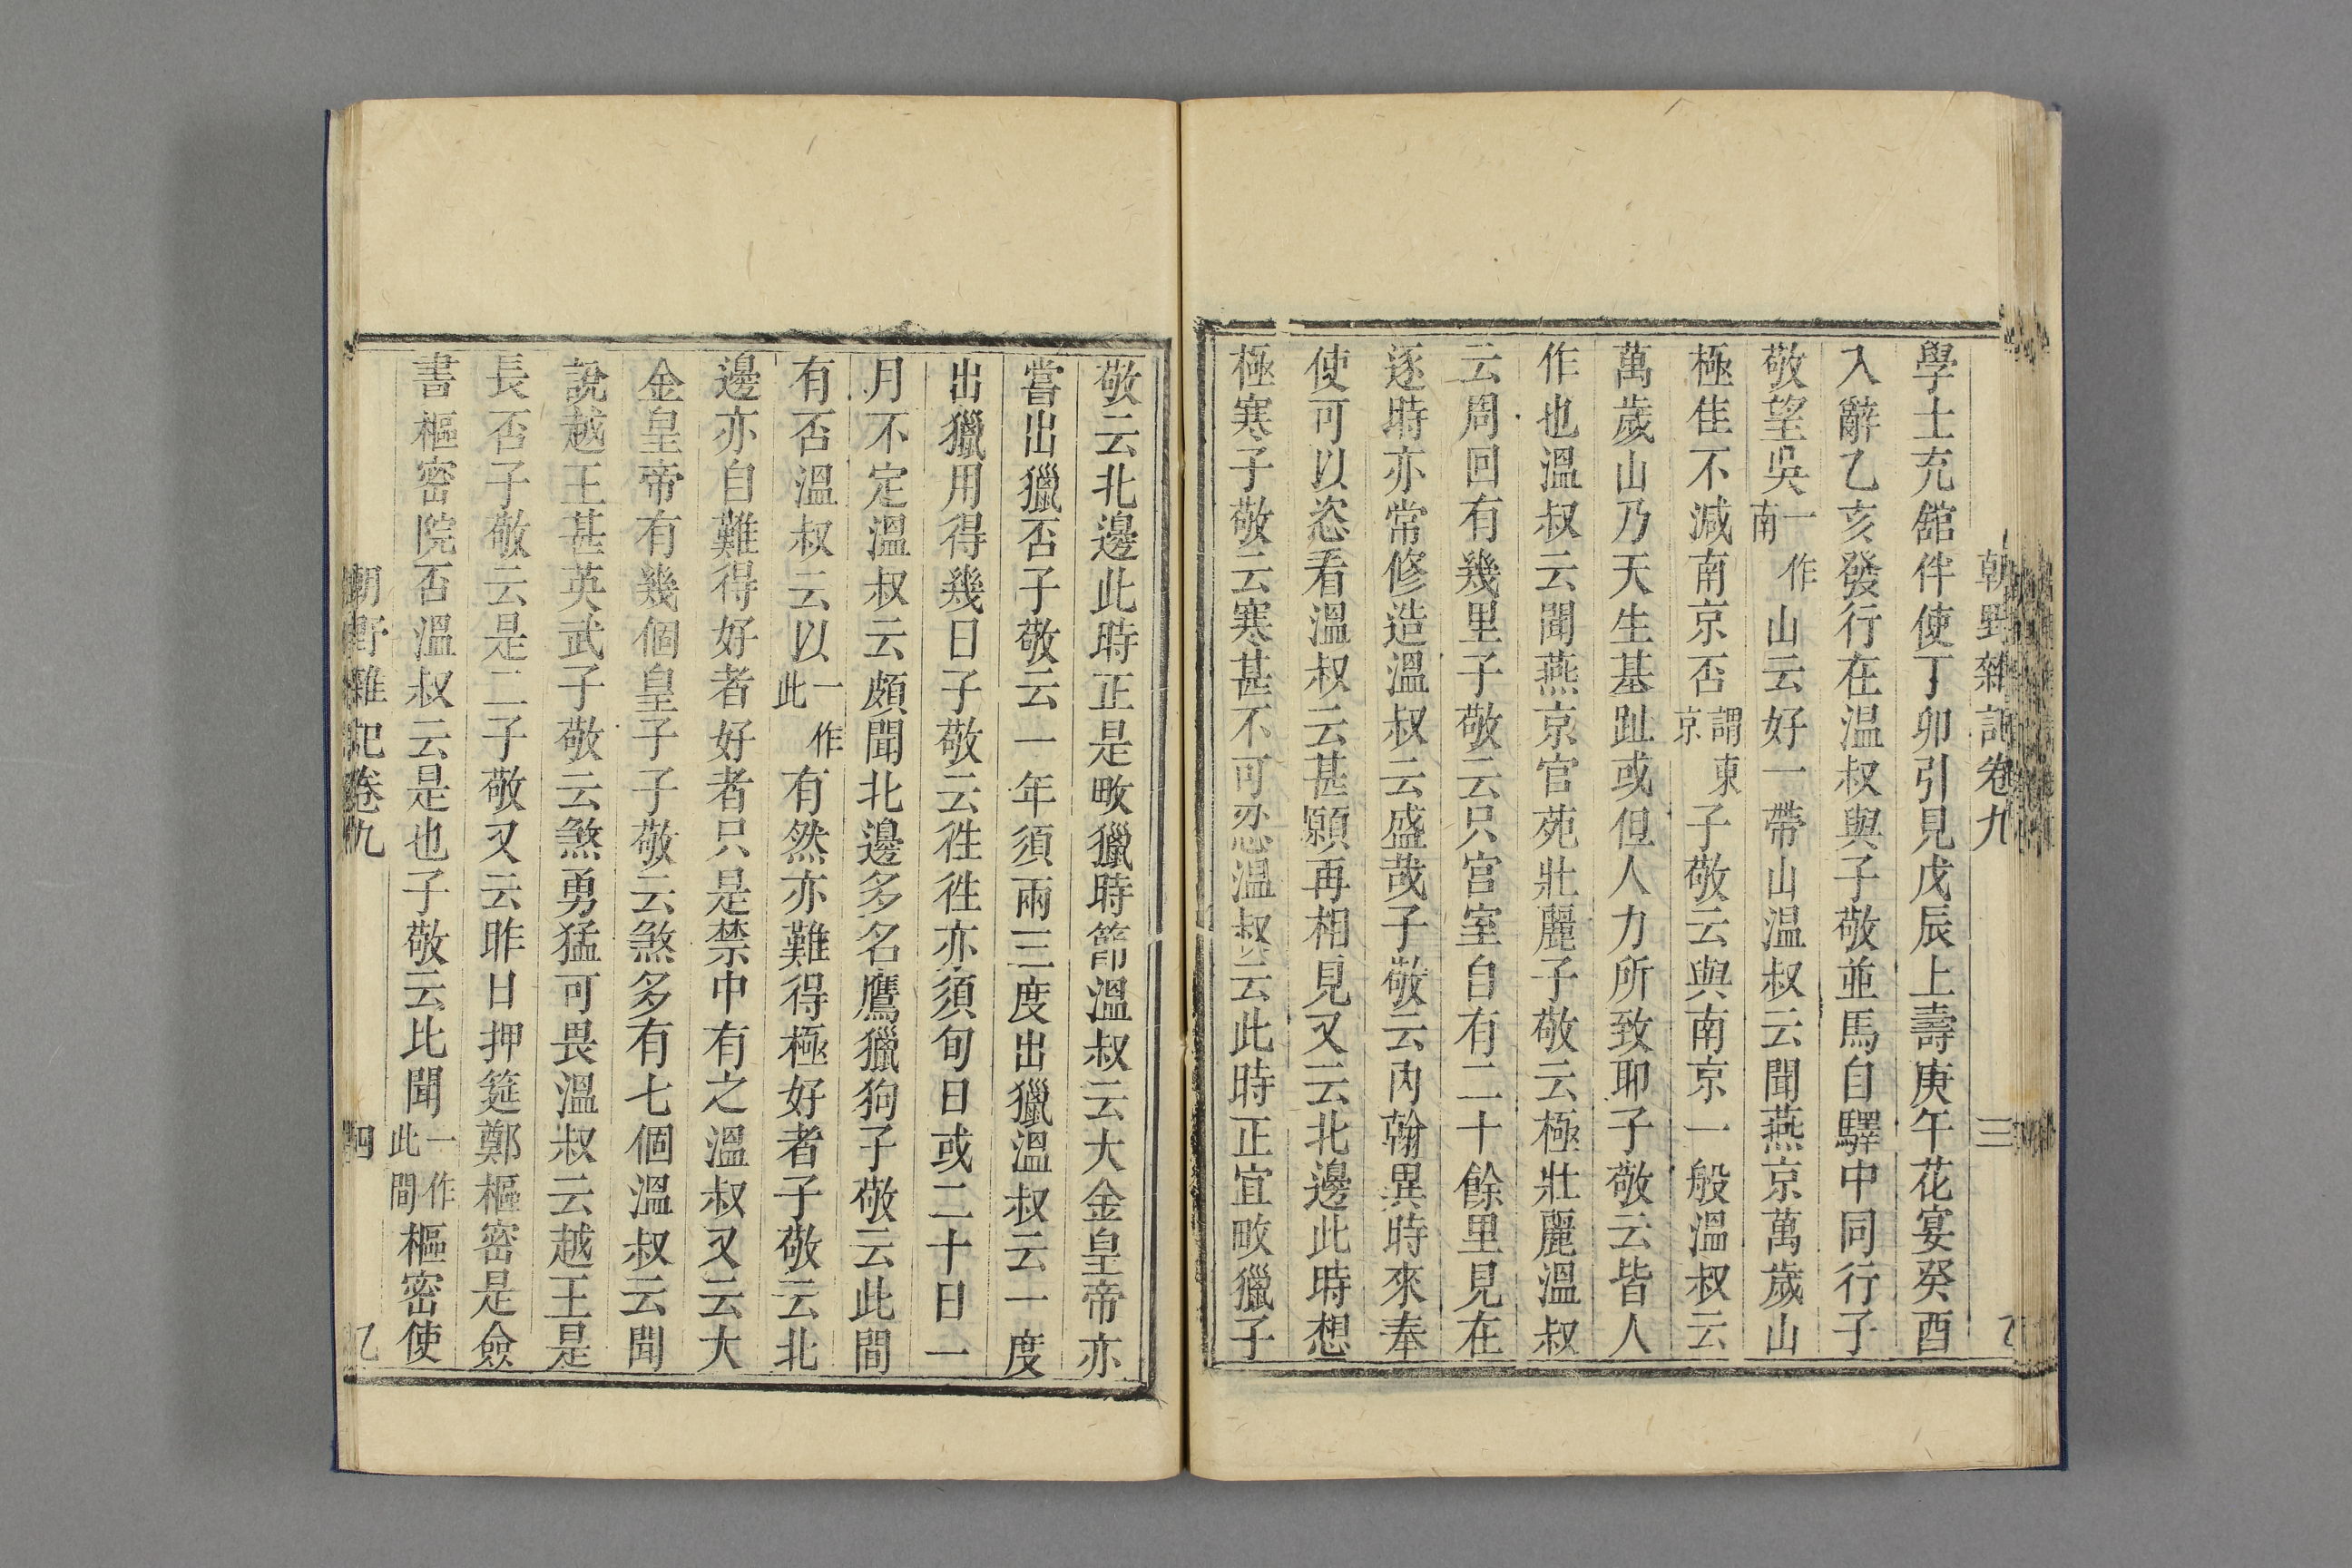 朝野雜記卷九 三 乙
學士充舘伴使丁卯引見戊辰上壽庚午花宴癸酉
入辭乙亥發行在温叔與子敬並馬自驛中同行子
敬望吳一作南山云好一帶山温叔云聞燕京萬歲山
極佳不減南京否謂東京子敬云與南京一般溫叔云
萬歲山乃天生基趾或但人力所致耶子敬云皆人
作也溫叔云聞燕京官苑壯麗子敬云極壯麗溫叔
云周回有幾里子敬云只宫室自有二十餘里見在
逐時亦常修造溫叔云盛哉子敬云內翰異時來奉
使可以恣看溫叔云甚願再相見又云北邊此時想
極寒子敬云寒甚不可忍溫叔云此時正宜畋獵子
敬云北邊此時正是畋獵時節溫叔云大金皇帝亦
嘗出獵否子敬云一年須兩三度出獵溫叔云一度
出獵用得幾日子敬云徃徃亦須旬日或二十日一
月不定溫叔云頗聞北邊多名鷹獵狗子敬云此間
有否溫叔云以一作此有然亦難得極好者子敬云北
邊亦自難得好者好者只是禁中有之溫叔又云大
金皇帝有幾個皇子子敬云煞多有七個溫叔云聞
說越王甚英武子敬云煞勇猛可畏溫叔云越王是
長否子敬云是二子敬又云昨日押筵鄭樞密是僉
書樞密院否溫叔云是也子敬云比聞一作此間樞密使
朝野雜記卷九 四 乙